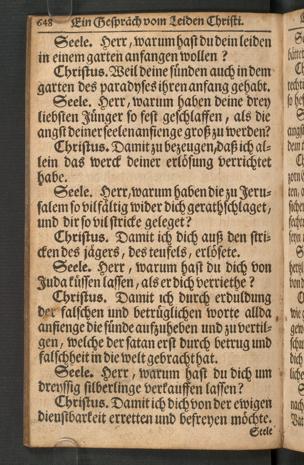 648 Ein Gespräch vom Leiden Christi.
Seele. Herr, warum hast du dein leiden
in einem garten anfangen wollen?
Christus. Weil deine sünden auch in dem
garten des paradyses ihren anfang gehabt.
Seele. Herr, warum haben deine drey
liebsten Jünger so fest geschlaffen, als die
angst deiner seelen anfienge groß zu werden?
Christus. Damit zu bezeugen, daß ich al-
lein das werck deiner erlösung verrichtet
habe.
Seele. Herr, warum haben die zu Jeru-
salem so vilfältig wider dich gerathschlaget,
und dir so vil stricke geleget?
Christus. Damit ich dich auß den stri-
cken des jägers, des teufels, erlösete.
Seele. Herr, warum hast du dich von
Juda küssen lassen, als er dich verriethe?
Christus. Damit ich durch erduldung
der falschen und betrüglichen worte allda
anfienge die sünde aufzuheben und zu vertil-
gen, welche der satan erst durch betrug und
falschheit in die welt gebracht hat.
Seele. Herr, warum hast du dich um
dreyssig silberlinge verkauffen lassen?
Christus. Damit ich dich von der ewigen
dienstbarkeit erretten und befreyen möchte.
Seele